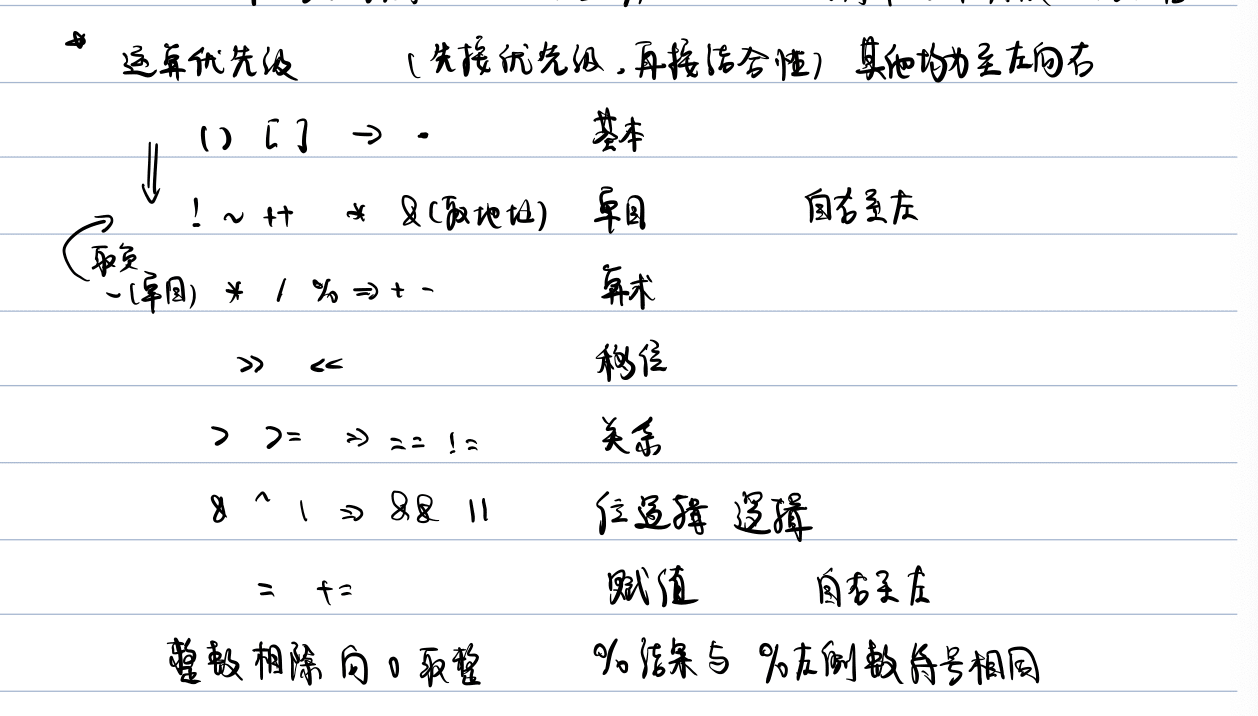 * 运算优先级 (先按优先级,再按结合性) 其他均为至左向右
() [] → · 基本
! ~ ++ * &(取地址) 单目 自右至左
取负
-(单目) * / % ⇒ + - 算术
>> << 移位
> >= ⇒ == != 关系
& ^ | ⇒ && || 位逻辑 逻辑
= += 赋值 自右至左
整数相除向0取整 %结果与%左侧数符号相同